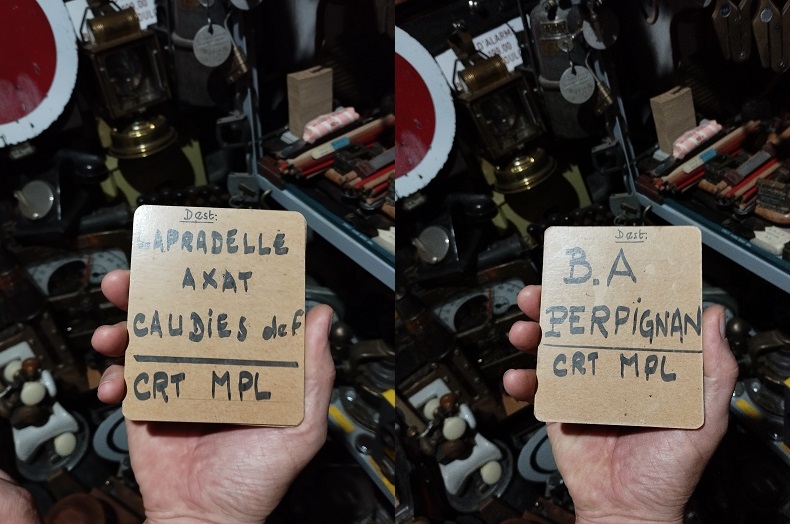 Dest:
LAPRADELLE
AXAT
CAUDIES def
CRT MPL
D'ALARM
Dest:
B.A
PERPIGNAN
CRT MPL